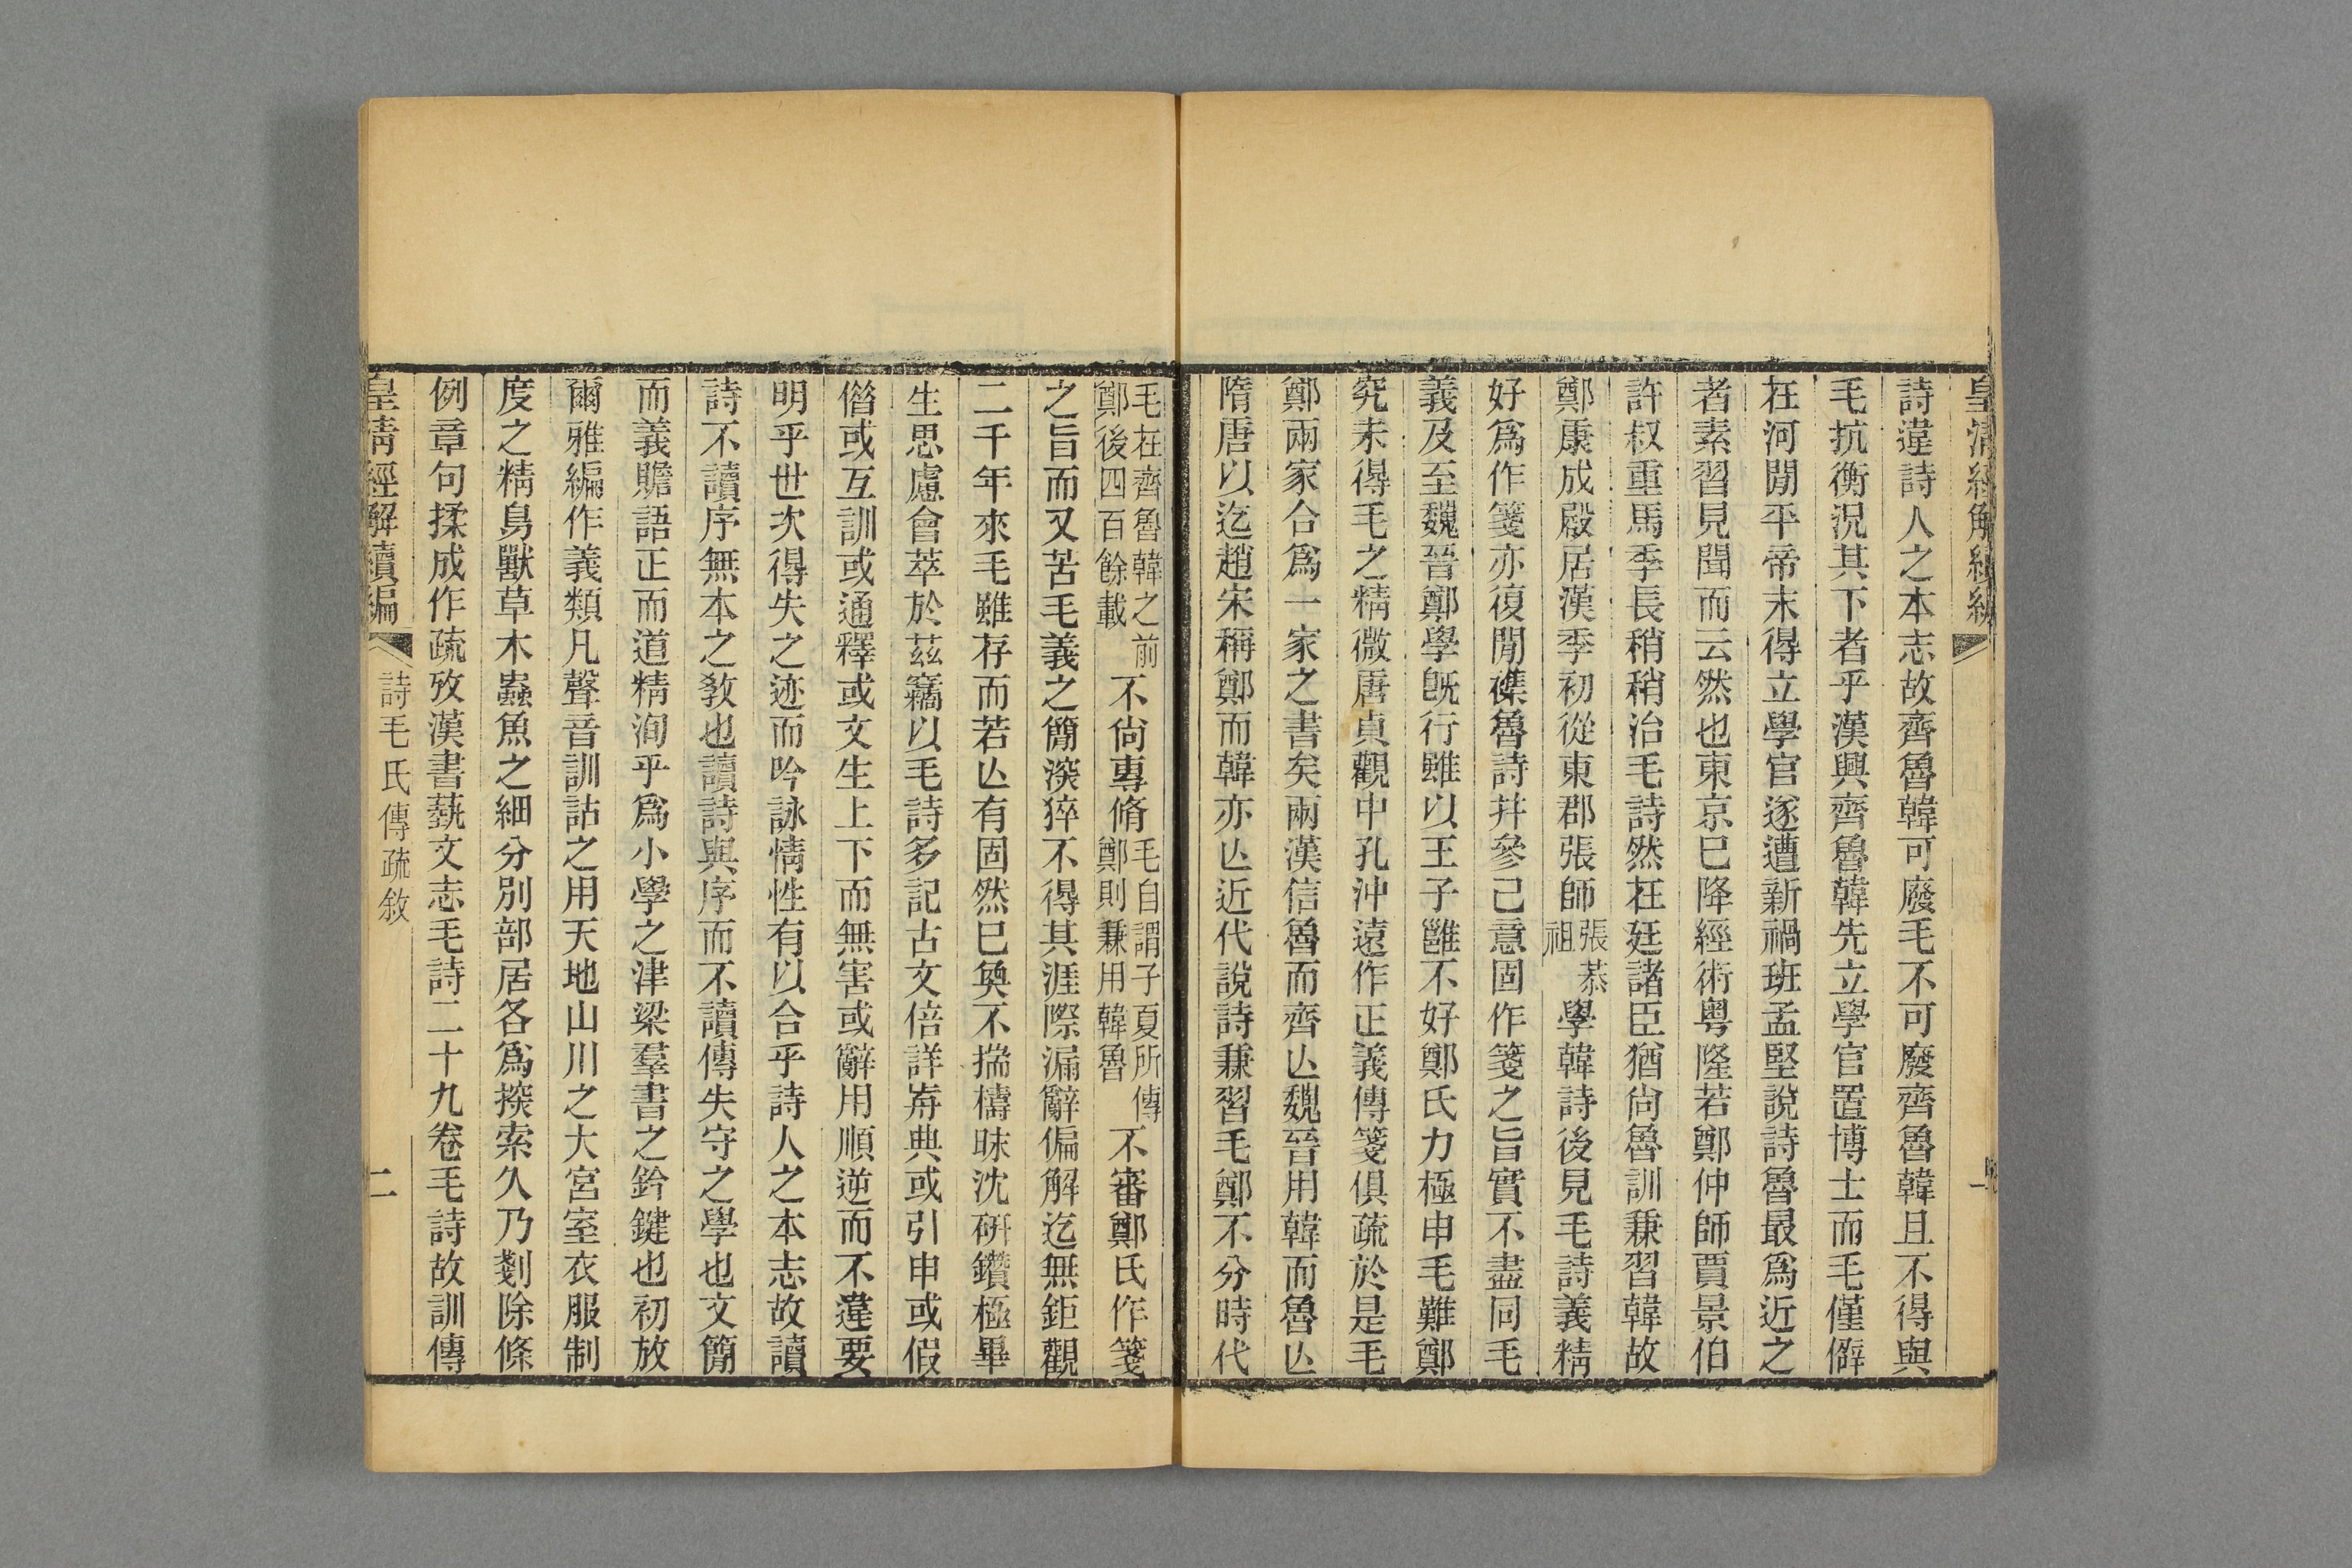 皇清經解續編
詩違詩人之本志故齊魯韓可廢毛不可廢齊魯韓且不得與
毛抗衡況其下者乎漢興齊魯韓先立學官置博士而毛僅僻
在河閒平帝末得立學官遂遭新禍班孟堅說詩魯最爲近之
者素習見聞而云然也東京已降經術粵隆若鄭仲師賈景伯
許叔重馬季長稍稍治毛詩然在廷諸臣猶尙魯訓兼習韓故
鄭康成殿居漢季初從東郡張師張恭祖學韓詩後見毛詩義精
好爲作箋亦復閒襍魯詩幷參己意固作箋之旨實不盡同毛
義及至魏晉鄭學旣行雖以王子雝不好鄭氏力極申毛難鄭
究未得毛之精微唐貞觀中孔沖遠作正義傳箋俱疏於是毛
鄭兩家合爲一家之書矣兩漢信魯而齊亾魏晉用韓而魯亾
隋唐以迄趙宋稱鄭而韓亦亾近代說詩兼習毛鄭不分時代
毛在齊魯韓之前鄭後四百餘載不尙專脩毛自謂子夏所傳鄭則兼用韓魯不審鄭氏作箋
之旨而又苦毛義之簡深猝不得其涯際漏辭偏解迄無鉅觀
二千年來毛雖存而若亾有固然已奐不揣檮昧沈硏鑽極畢
生思慮會萃於茲竊以毛詩多記古文倍詳歬典或引申或假
借或互訓或通釋或文生上下而無害或辭用順逆而不違要
明乎世次得失之迹而吟詠情性有以合乎詩人之本志故讀
詩不讀序無本之敎也讀詩與序而不讀傳失守之學也文簡
而義贍語正而道精洵乎爲小學之津梁羣書之鈐鍵也初放
爾雅編作義類凡聲音訓詁之用天地山川之大宮室衣服制
度之精鳥獸草木蟲魚之細分別部居各爲探索久乃剗除條
例章句揉成作疏攷漢書藝文志毛詩二十九卷毛詩故訓傳
皇清經解續編
詩毛氏傳疏敘
二